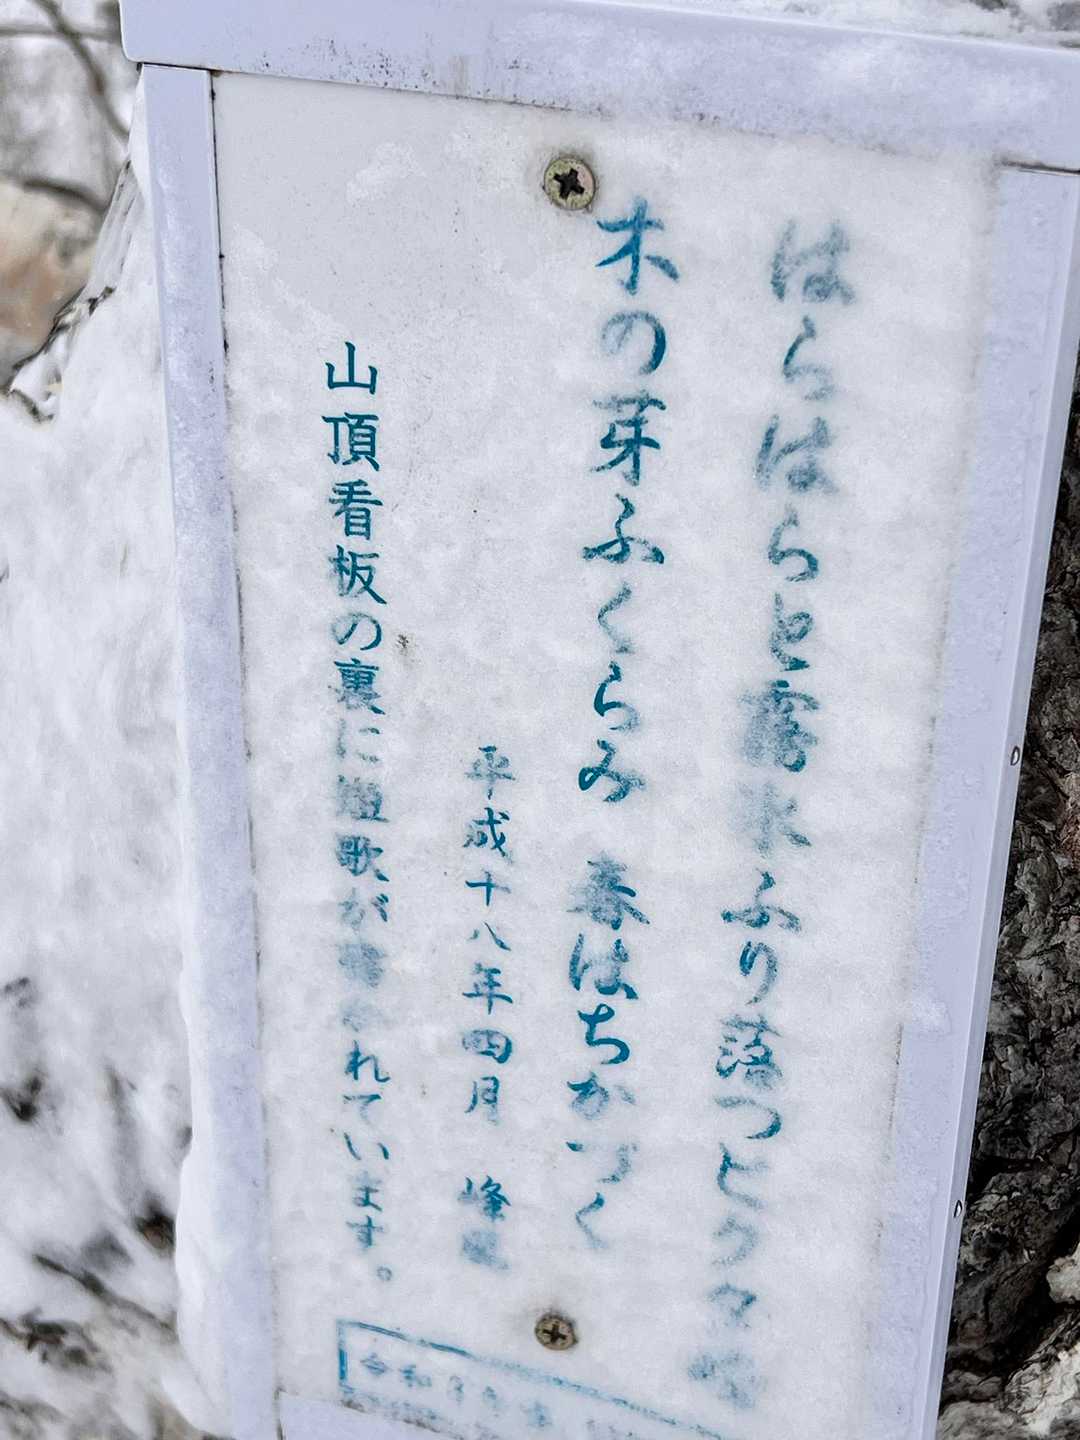 はらはらと霧氷ふり落つヒクタ峰
木の芽ふくらみ 春はちかづく
平成十八年四月 峰
山頂看板の裏に短歌が書かれています。
令和3年